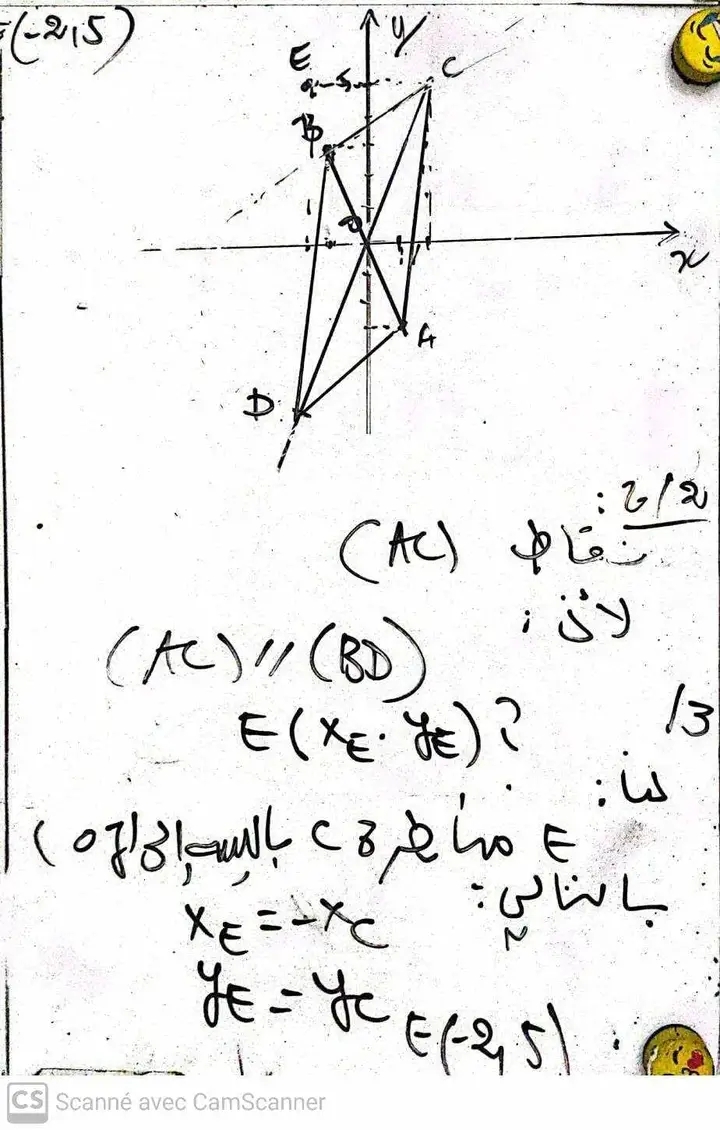 E(-2,5)
y
E
C
5
B
O
x
A
D
2/ب:
نقاط (AC)
لأن:
(AC)//(BD)
3/ E(xE. yE)?
لنا:
E مناظرة C بالنسبة لـ
بالتالي:
xE=-xC
yE=yC E(-2,5)
CS Scanné avec CamScanner